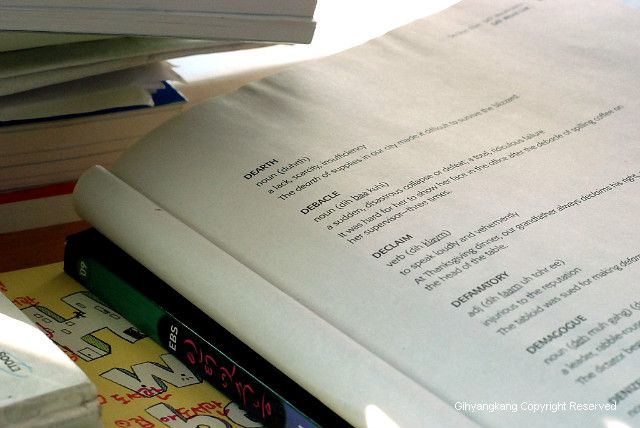 DEARTH
noun (duhrth)
a lack, scarcity, insufficiency
The dearth of supplies in our city made it difficult to survive the blizzard.
DEBACLE
noun (dih baa kuhl)
a sudden, disastrous collapse or defeat; a total, ridiculous failure
It was hard for her to show her face in the office after the debacle of spilling coffee on
her supervisor—three times.
DECLAIM
verb (dih klaym)
to speak loudly and vehemently
At Thanksgiving dinner, our grandfather always declaims his right,
the head of the table.
DEFAMATORY
adj (dih faam uh tohr ee)
injurious to the reputation
The tabloid was sued for making
DEMAGOGUE
noun (deh muh gahg)
a leader, rabble-rouser
The dictator
EBS
Gihyangkang Copyright Reserved